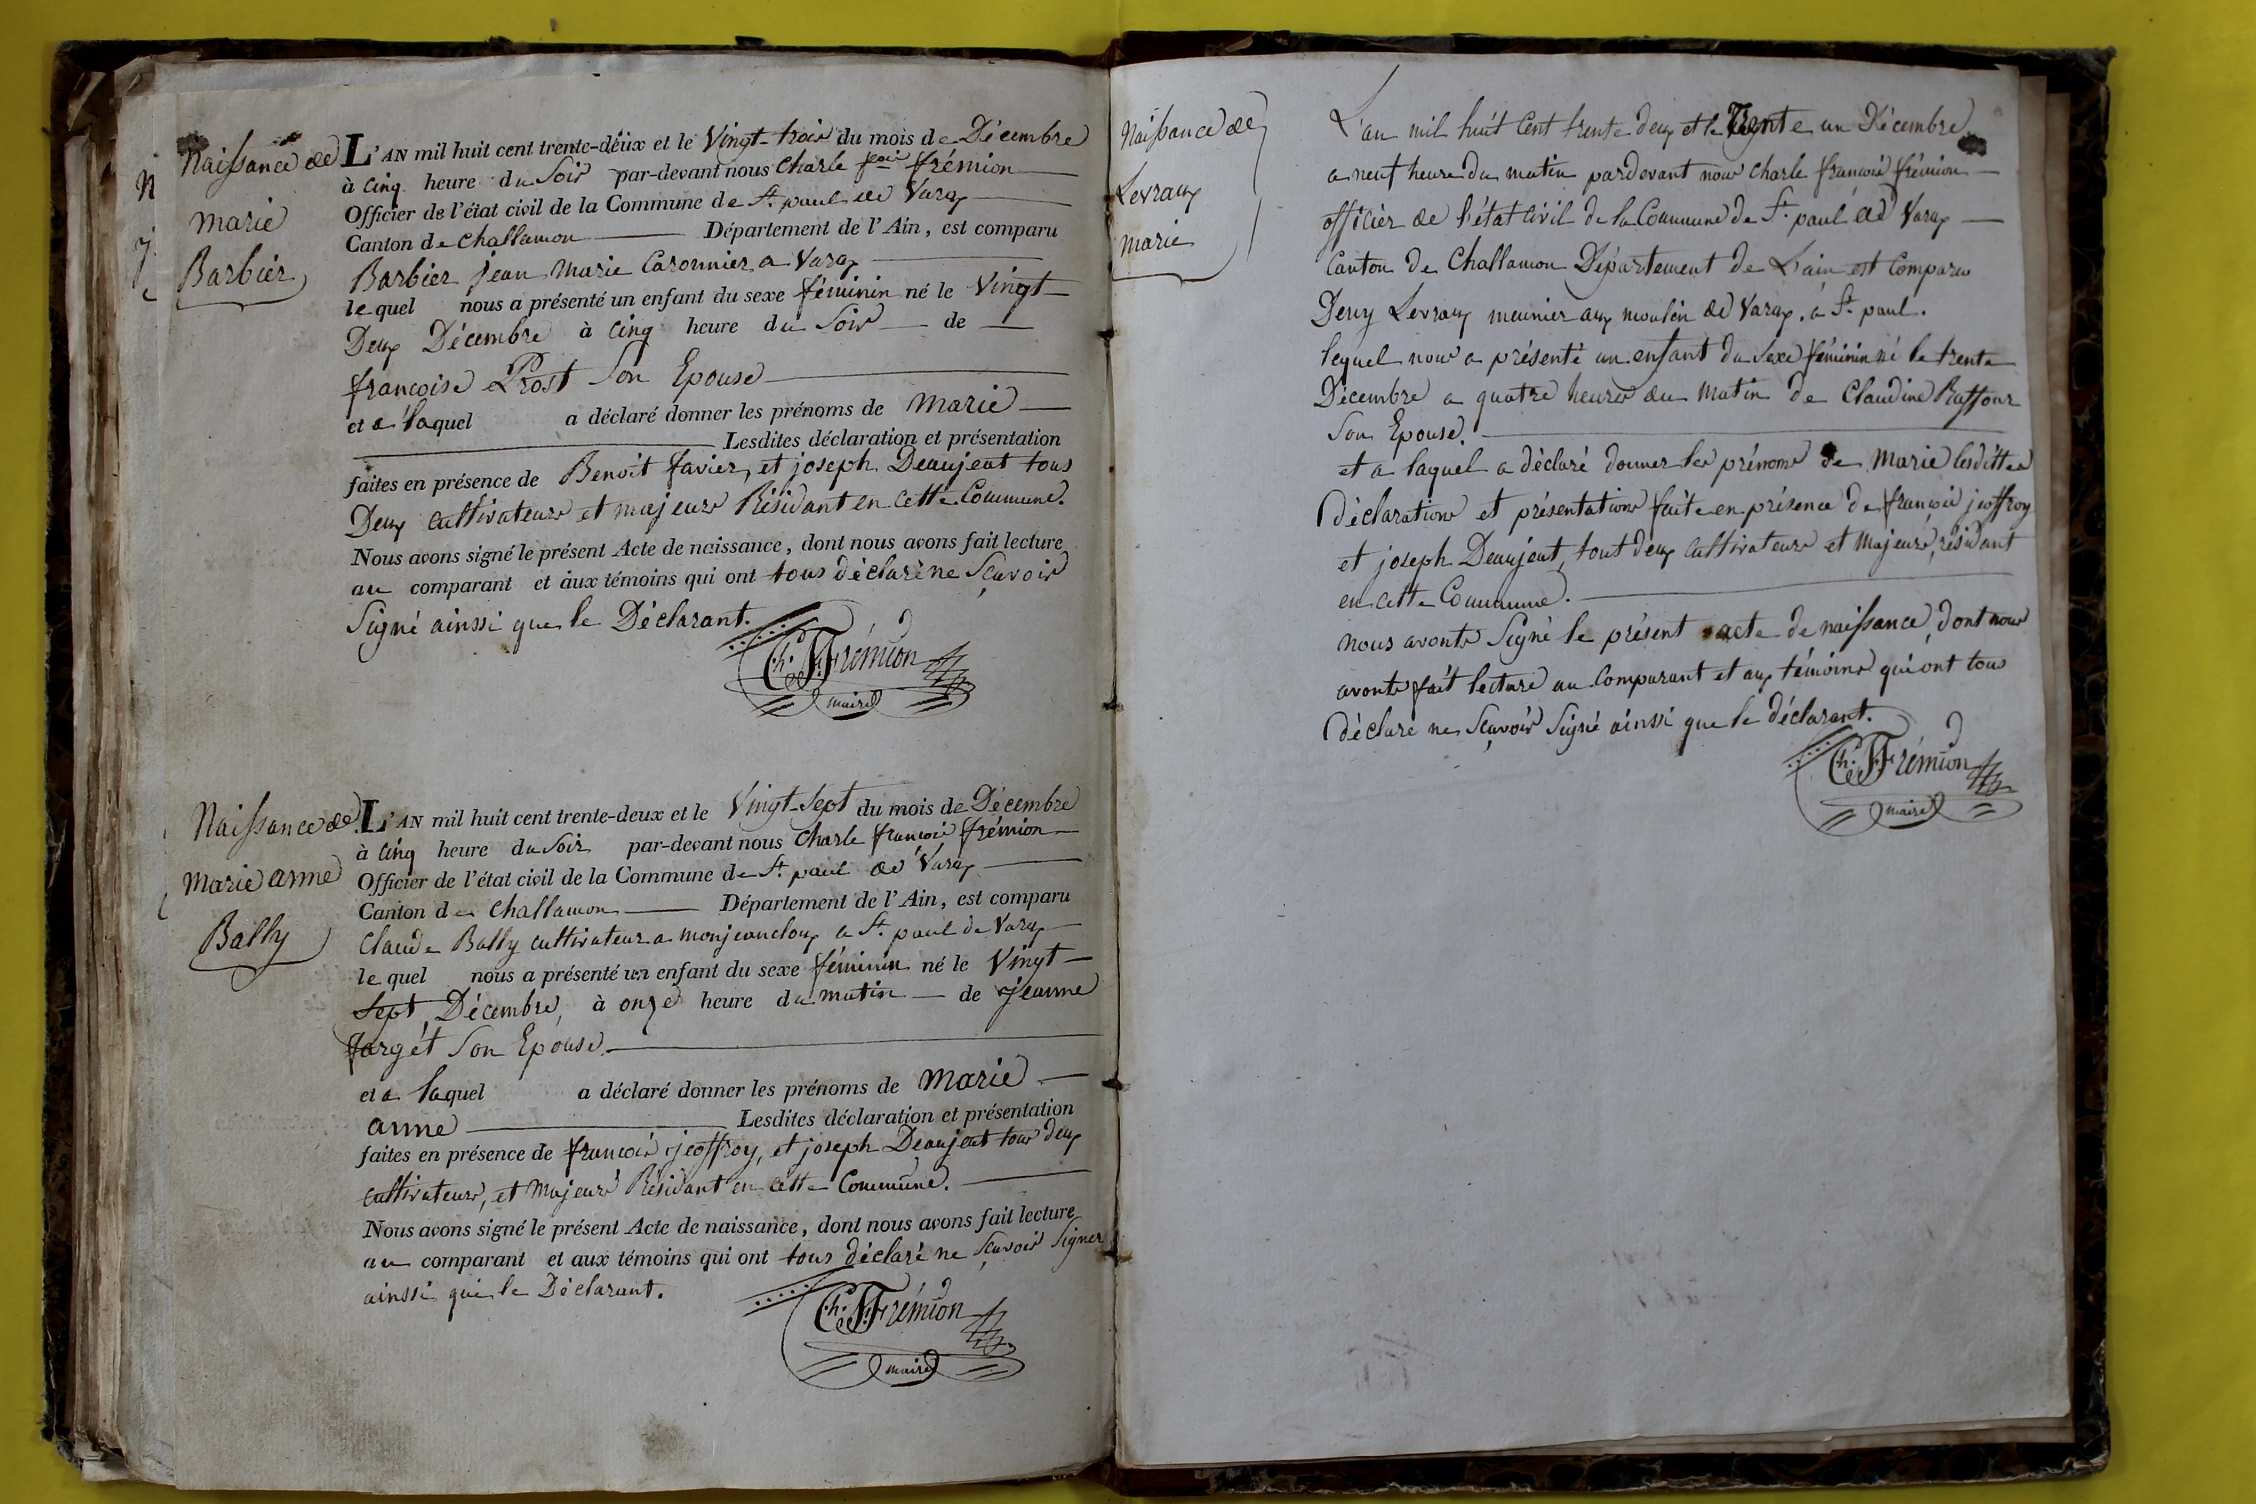 Naissance de
Marie
Barbier
L'AN mil huit cent trente-deux et le Vingt-trois du mois de Décembre
à Cinq heure du Soir par-devant nous Charle fçois frémion
Officier de l'état civil de la Commune de St. paul de Varax
Canton de Challamon Département de l'Ain, est comparu
Barbier jean Marie Caronnier a Varax
le quel nous a présenté un enfant du sexe féminin né le Vingt
Deux Décembre à Cinq heure du Soir de
francoise Prost Son Epouse
et a laquel a déclaré donner les prénoms de Marie
Lesdites déclaration et présentation
faites en présence de Benoit favier, et joseph Deaujeat tous
Deux cultivateurs et majeurs Résidant en cette Commune.
Nous avons signé le présent Acte de naissance, dont nous avons fait lecture
au comparant et aux témoins qui ont tous déclaré ne Sçavoir
Signé ainssi que le Déclarant.
Ch. F. Frémion
maire
Naissance de
Marie anne
Bally
L'AN mil huit cent trente-deux et le Vingt-Sept du mois de Décembre
à Cinq heure du Soir par-devant nous Charle francois frémion
Officier de l'état civil de la Commune de St. paul de Varax
Canton de Challamon Département de l'Ain, est comparu
Claude Bally cultivateur a monjeancloux a St. paul de Varax
le quel nous a présenté un enfant du sexe féminin né le Vingt
Sept, Décembre, à onze heure du matin de jeanne
fargét Son Epouse
et a laquel a déclaré donner les prénoms de Marie
anne Lesdites déclaration et présentation
faites en présence de francois jeoffroy, et joseph Deaujeat tous deux
cultivateurs, et Majeurs Résidant en cette Commune.
Nous avons signé le présent Acte de naissance, dont nous avons fait lecture
au comparant et aux témoins qui ont tous déclaré ne Sçavoir Signer
ainssi que le Déclarant.
Ch. F. Frémion
maire
Naissance de
Levraux
Marie
L'an mil huit Cent trente deux et le Trente un Décembre
a neuf heure du matin pardevant nous Charle francois frémion
officier de l'état civil de la Commune de St. paul de Varax
Canton de Challamon Département de L'ain est Comparu
Deny Levraux meunier aux moulin de Varax, a St. paul.
lequel nous a présenté un enfant du Sexe féminin né le trente
Décembre a quatre heures du Matin de Claudine Raffour
Son Epouse.
et a laquel a déclaré donner les prénoms de Marie lesdittes
déclarations et présentations faite en présence de françois jeoffroy
et joseph Deaujeat, tout deux cultivateurs et Majeurs, résidant
en cette Commune.
nous avonts Signé le présent acte de naissance, dont nous
avonts fait lecture au Comparant et aux témoins qui ont tous
déclaré ne Sçavoir Signé ainssi que le déclarant.
Ch. F. Frémion
maire